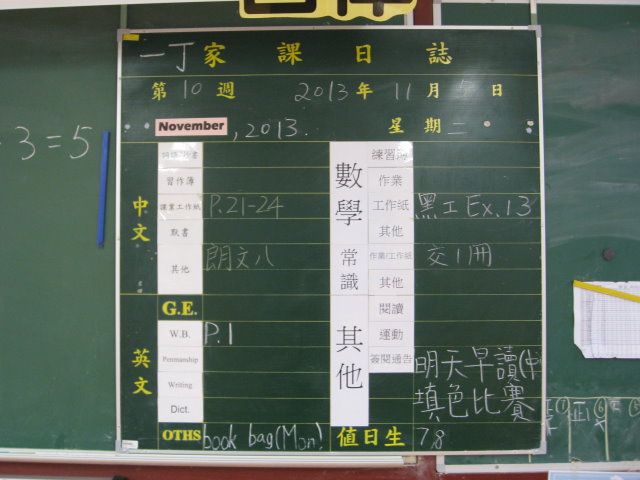 3=5
一丁家課日誌
第10週 2013年11月5日
November, 2013. 星期二
中文
習作簿
課業工作紙 P.21-24
默書
其他 朗文八
英文
G.E.
W.B. P.1
Penmanship
Writing
Dict.
OTHS book bag(Mon)
數學
練習簿
作業
工作紙 黑工Ex.13
其他
常識
作業/工作紙 交1冊
其他
其他
閱讀
運動
簽閱通告
明天早讀(中)
填色比賽
值日生 7,8